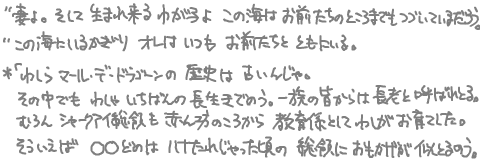 "妻よ。そして 生まれ来る わが子よ この海は お前たちのところまでもつづいているだろう。
"この海にいるかぎり オレは いつも お前たちと ともにいる。
*「わしら マール・デ・ドラゴーンの 歴史は 古いんじゃ。
その中でも わしゃ いちばんの 長生きでのう。一族の皆からは 長老と 呼ばれとる。
むろん シャークアイ総領も 赤ん坊のころから 教育係として わしが お育てした。
そういえば ○○どのは ハナたれじゃった頃の 総領に おもかげが 似とるのう。